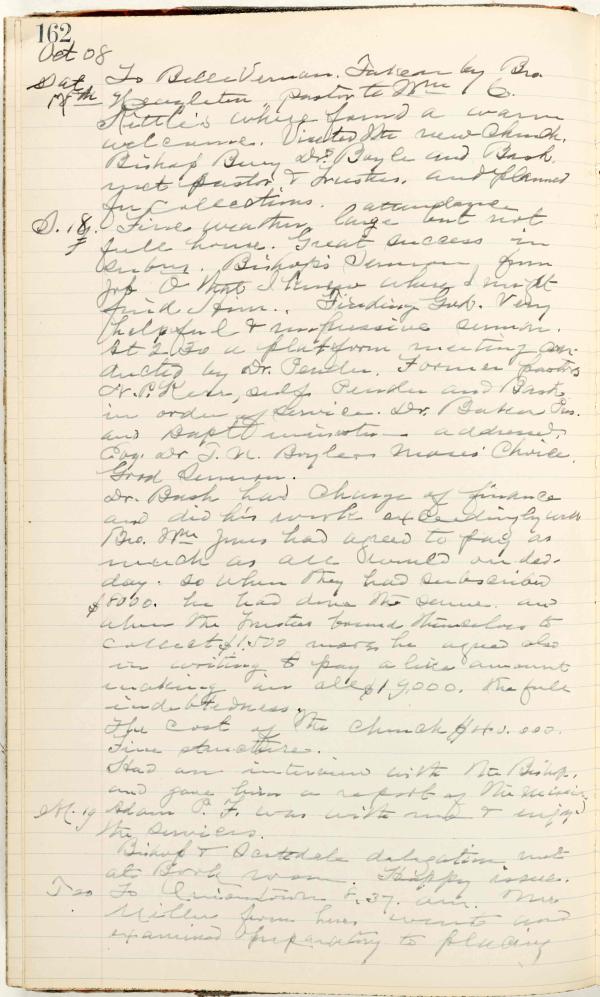 162
Oct 08
Sat 17th To Belle Vernon. Taken by Bro.
pastor to Wm C.
where found a warm
welcome. Visited the new Church.
Bishop Berry Dr. Boyle and Bash
met pastor & Trustees. and planned
for collections. attendance
S. 18. Fine weather, large but not
full house. Great success in
Bishop's Sermon from
Job O that I knew where I might
find Him. Finding God. Very
helpful & impressive sermon.
At 2.30 a platform meeting con-
ducted by Dr. Pender. Former pastors
Kerr, self Pender and Bash
in order of service. Dr. Baker Pres.
and Bapt minister addressed.
Evg. Dr T. N. Boyles Moses' Choice.
Good Sermon.
Dr. Bash had charge of finance
and did his work exceedingly well
Bro. Wm Jones had agreed to pay as
much as all would on ded-
day. So when they had subscribed
$8000. he had done the same. and
when the Trustees bound themselves to
collect $1.500 more, he agreed also
in writing to pay a like amount
making in all $19,000. the full
indebtedness.
The cost of the Church $40.000.
Fine structure.
Had an interview with the Bishop.
and gave him a report of the
M. 19 Adam P. F. was with me & enjoyd
the services.
Bishop & Scottdale delegation met
at Book room. Happy issue.
T 20 To Uniontown 8.37. am. Mrs
Miller from here went and
examined preparatory to placing